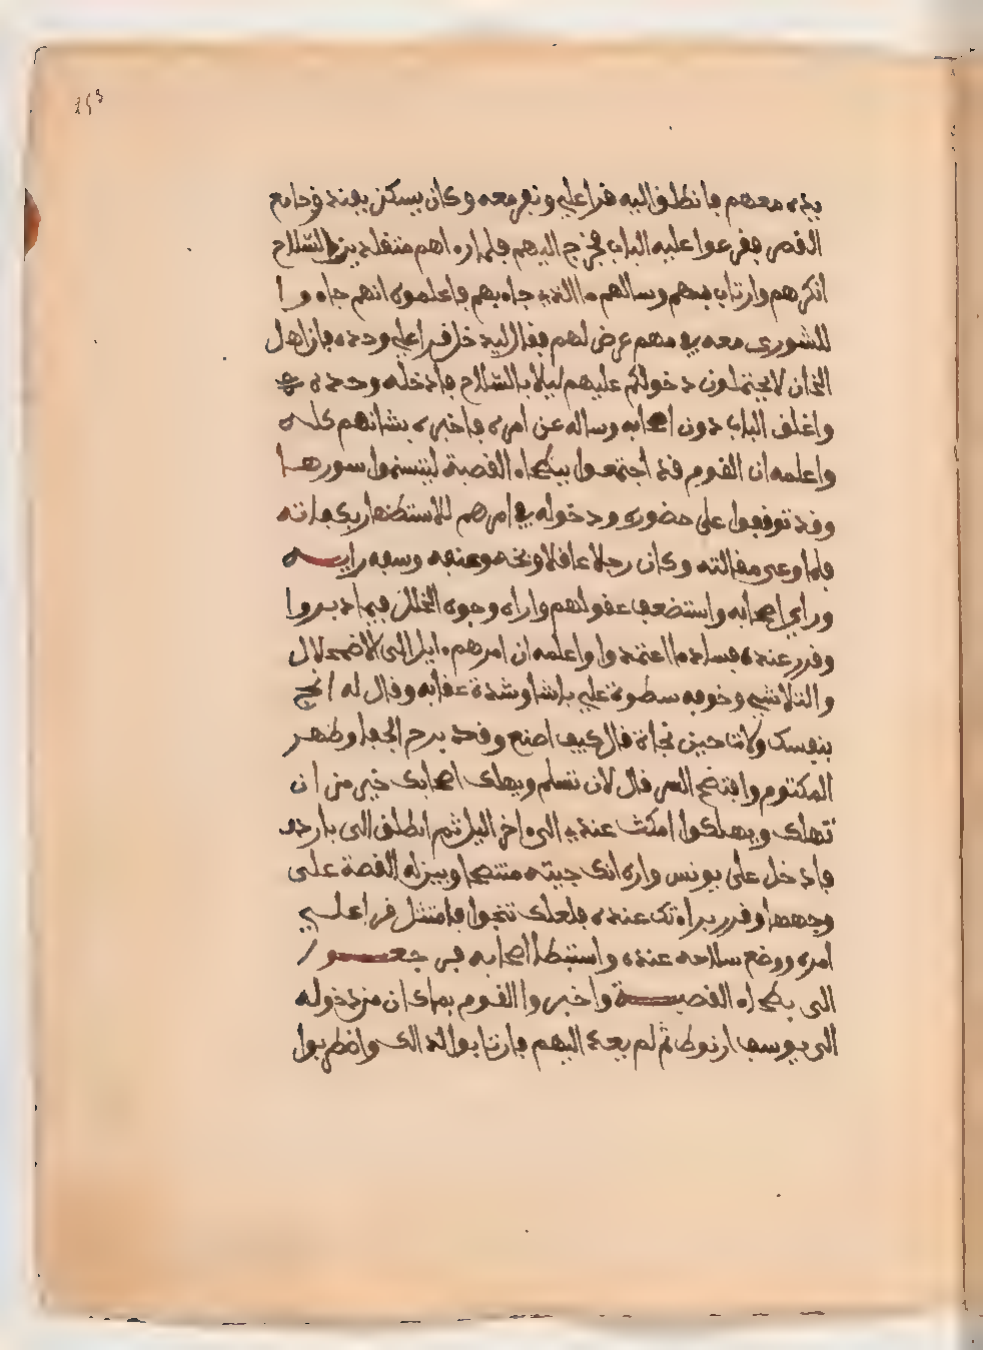 153
يده معهم فانطلق اليه قرا علي ونفر معه وكان يسكن بفندق جامع
القصر فقرعوا عليه الباب فخرج اليهم فلما راهم متقلدين السلاح
انكرهم وارتاب منهم وسالهم ما الذي جاء بهم فاعلموه انهم جاءوا
للشورى معه في مهم عرض لهم فقال ليدخل قرا علي وحده فان اهل
الخان لا يحتملون دخولكم عليهم ليلا بالسلاح فادخله وحده
واغلق الباب دون اصحابه وساله عن امره فاخبره بشانهم كله
واعلمه ان القوم قد اجتمعوا ببطحاء القصبة ليتسنموا سورها
وقد توقفوا على حضوره ودخوله في امرهم للاستظهار بكفايته
فلما وعى مقالته وكان رجلا عاقلا وبخه وعنفه وسفه رايه
وراي اصحابه واستضعف عقولهم واراه وجوه الخلل فيما دبروا
وقرر عنده فساد ما اعتمدوا واعلمه ان امرهم ءايل الى الاضمحلال
والتلاشي وخوفه سطوة علي باشا وشدة عقابه وقال له انج
بنفسك ولات حين نجاة قال كيف اصنع وقد برح الخفا وظهر
المكتوم وافتضح السر قال لان تسلم ويهلك اصحابك خير من ان
تهلك ويهلكوا امكث عندي الى ءاخر الليل ثم انطلق الى باردو
فادخل على يونس واره انك جيته متنصحا وبين له القصة على
وجهها وقرر براءتك عنده فلعلك تنجوا فامتثل قرا علي
امره ووضع سلاحه عنده واستبطا اصحابه فرجعوا
الى بطحاء القصبة واخبروا القوم بما كان من دخوله
الى يوسف ارنوط ثم لم يعد اليهم فارتابوا لذالك واضطربوا